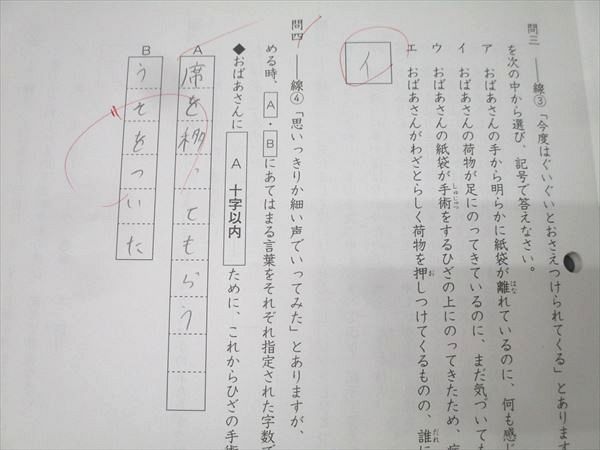 問三 ――線③「今度はぐいぐいとおさえつけられてくる」とあります
を次の中から選び、記号で答えなさい。
ア おばあさんの手から明らかに紙袋が離れているのに、何も感じ
イ おばあさんの荷物が足にのってきているのに、まだ気づいても
ウ おばあさんの紙袋が手術をするひざの上にのってきたため、
エ おばあさんがわざとらしく荷物を押しつけてくるものの、誰に
イ
問四 ――線④「思いっきりか細い声でいってみた」とありますが、
める時、A・Bにあてはまる言葉をそれぞれ指定された字数で
◆おばあさんに A 十字以内 ために、これからひざの手術
A 席を移ってもらう
B うそをついた